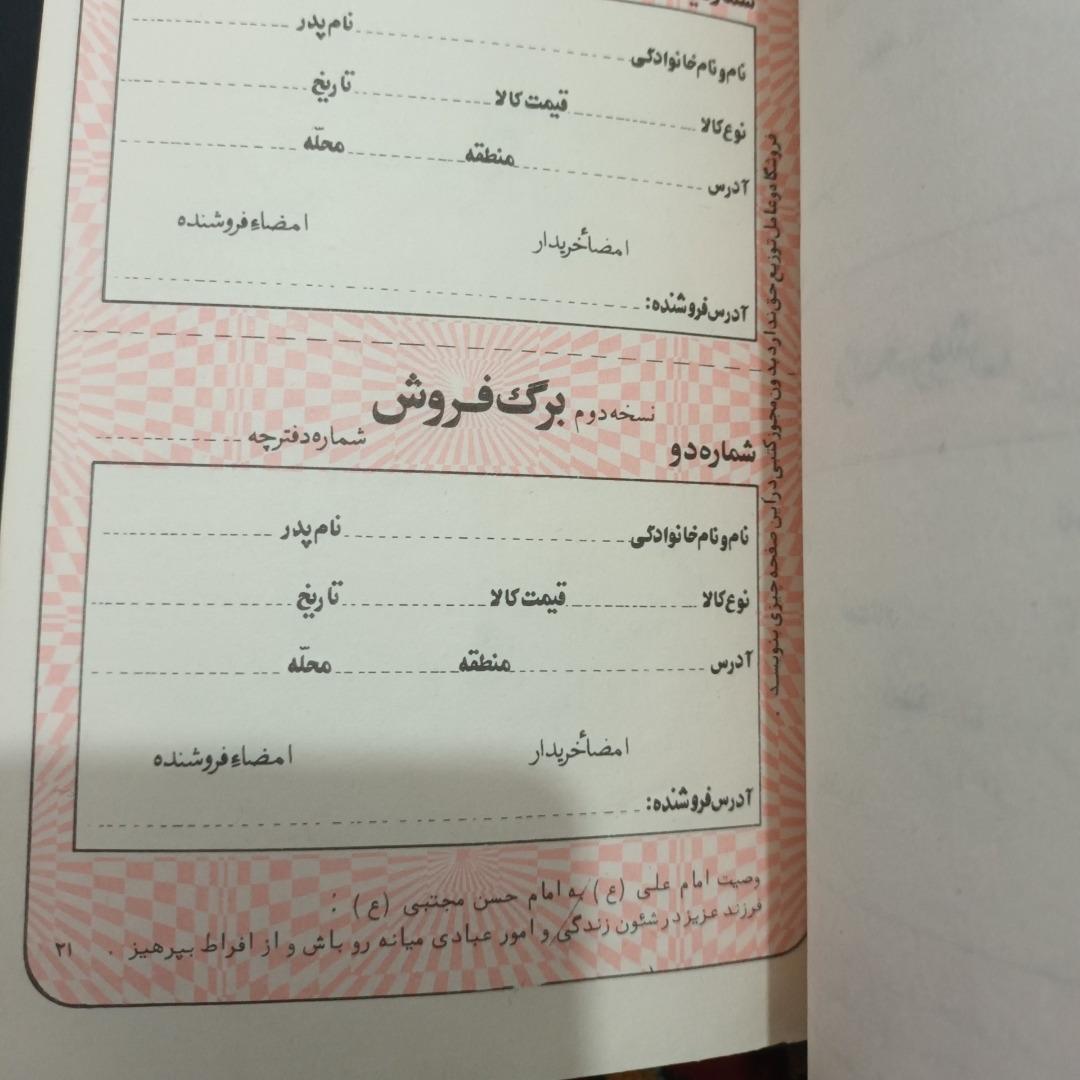 نام و نام خانوادگی نام پدر
نوع کالا قیمت کالا تاریخ
آدرس منطقه محلّه
امضأ خریدار امضاء فروشنده
آدرس فروشنده:
نسخه دوم برگ فروش
شماره دو شماره دفترچه
نام و نام خانوادگی نام پدر
نوع کالا قیمت کالا تاریخ
آدرس منطقه محلّه
امضأ خریدار امضاء فروشنده
آدرس فروشنده:
وصیت امام علی (ع) به امام حسن مجتبی (ع) :
فرزند عزیز در شئون زندگی و امور عبادی میانه رو باش و از افراط بپرهیز .
۲۱
فروشگاه و عامل توزیع حق ندارد بدون مجوز کتبی در این صفحه چیزی بنویسد .